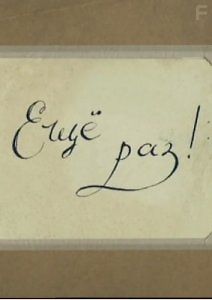 F
Ещё
раз!